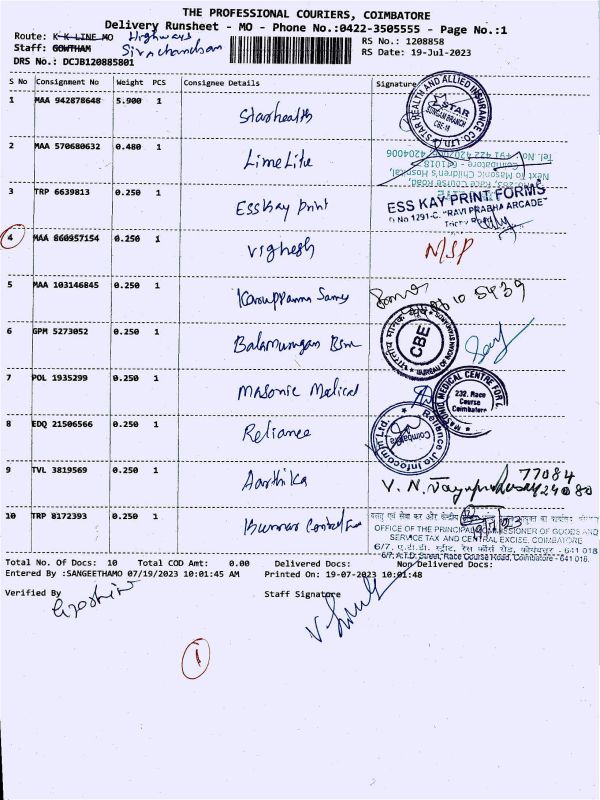 THE PROFESSIONAL COURIERS, COIMBATORE
Delivery Runsheet - MO - Phone No.:0422-3505555 - Page No.:1
Route: K K LINE MO Highways
RS No.: 1208858
Staff: GOWTHAM
RS Date: 19-Jul-2023
DRS No.: DCJB120885801
S No Consignment No Weight PCS Consignee Details Signature
1 MAA 942878648 5.900 1 Starhealth
STAR HEALTH AND ALLIED INSURANCE CO. LTD.
STAR
CBE-18
2 MAA 570680632 0.480 1 LimeLite
Tel. No. +91 422 4202006 4204006
Coimbatore - 641018.
Next To Masonic Children's Hospital,
Race Course Road
3 TRP 6639813 0.250 1 Esskay Print
ESS KAY PRINT FORMS
No 1291-C, "RAVI PRABHA ARCADE"
Trichy Road
4 MAA 860957154 0.250 1 Vighesh NSP
5 MAA 103146845 0.250 1 Karuppanna Samy
6 GPM 5273052 0.250 1 Balamurugan Bsm
CBE
BUREAU OF INDIAN STANDARDS
7 POL 1935299 0.250 1 Masonic Medical
MASONIC MEDICAL CENTRE FOR
232, Race
Course
Coimbatore
8 EDQ 21506566 0.250 1 Reliance
Reliance Jio Infocomm Ltd.
Coimbatore
9 TVL 3819569 0.250 1 Aarthika
77084
V. N.
24080
10 TRP 8172393 0.250 1
OFFICE OF THE PRINCIPAL COMMISSIONER OF GOODS AND
SERVICE TAX AND CENTRAL EXCISE, COIMBATORE
6/7, ए.टी.डी. स्ट्रीट, रेस कोर्स रोड, कोयंबत्तूर - 641 018
6/7, A.T.D. Street, Race Course Road, Coimbatore - 641 018.
Total No. Of Docs: 10 Total COD Amt: 0.00 Delivered Docs: Non Delivered Docs:
Entered By :SANGEETHAMO 07/19/2023 10:01:45 AM Printed On: 19-07-2023 10:01:48
Verified By Staff Signature
1